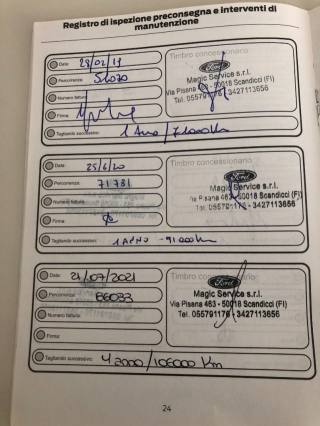 Registro di ispezione preconsegna e interventi di
manutenzione
Data: 28/02/19
Timbro concessionario
Percorrenza: 51070
Ford
Numero fattura:
Magic Service s.r.l.
Via Pisana 463 - 50018 Scandicci (FI)
Tel. 055791176 - 3427113656
Firma:
Tagliando successivo: 1 Anno / 71000 Km
Data: 25/6/20
Timbro concessionario
Percorrenza: 71731
Ford
Numero fattura:
Magic Service s.r.l.
Via Pisana 463 - 50018 Scandicci (FI)
Tel. 055791176 - 3427113656
Firma:
Tagliando successivo: 1 ANNO - 91000 Km
Data: 21/07/2021
Timbro concessionario:
Percorrenza: 86033
Ford
Numero fattura:
Magic Service s.r.l.
Via Pisana 463 - 50018 Scandicci (FI)
Tel. 055791176 - 3427113656
Firma:
Tagliando successivo: / 106000 Km
24